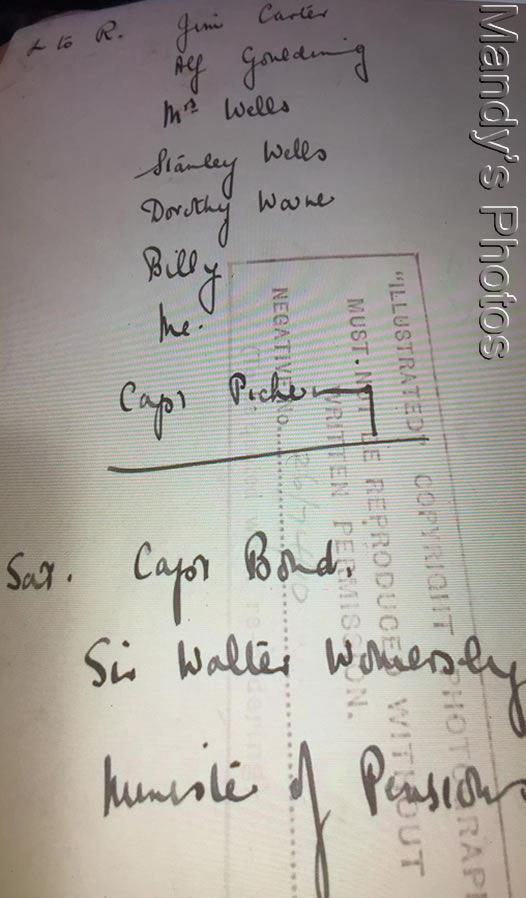 L to R. Jim Carter
Alf Goulding
Mrs Wells
Stanley Wells
Dorothy Warne
Billy
Me.
Capt
Sat. Capt Bond.
Sir Walter Womersley
Minister of Pensions
"ILLUSTRATED" COPYRIGHT PHOTOGRAPH
MUST NOT BE REPRODUCED WITHOUT
WRITTEN PERMISSION.
NEGATIVE No.
Mandy's Photos